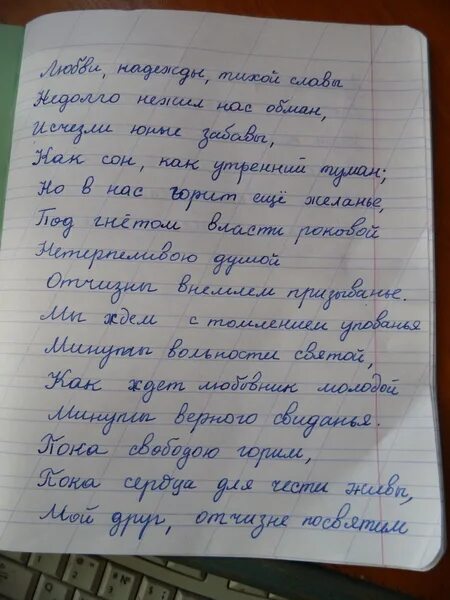 Любви, надежды, тихой славы
Недолго нежил нас обман,
Исчезли юные забавы,
Как сон, как утренний туман;
Но в нас горит ещё желанье,
Под гнётом власти роковой
Нетерпеливою душой
Отчизны внемлем призыванье.
Мы ждем с томлением упованья
Минуты вольности святой,
Как ждет любовник молодой
Минуты верного свиданья.
Пока свободою горим,
Пока сердца для чести живы,
Мой друг, отчизне посвятим